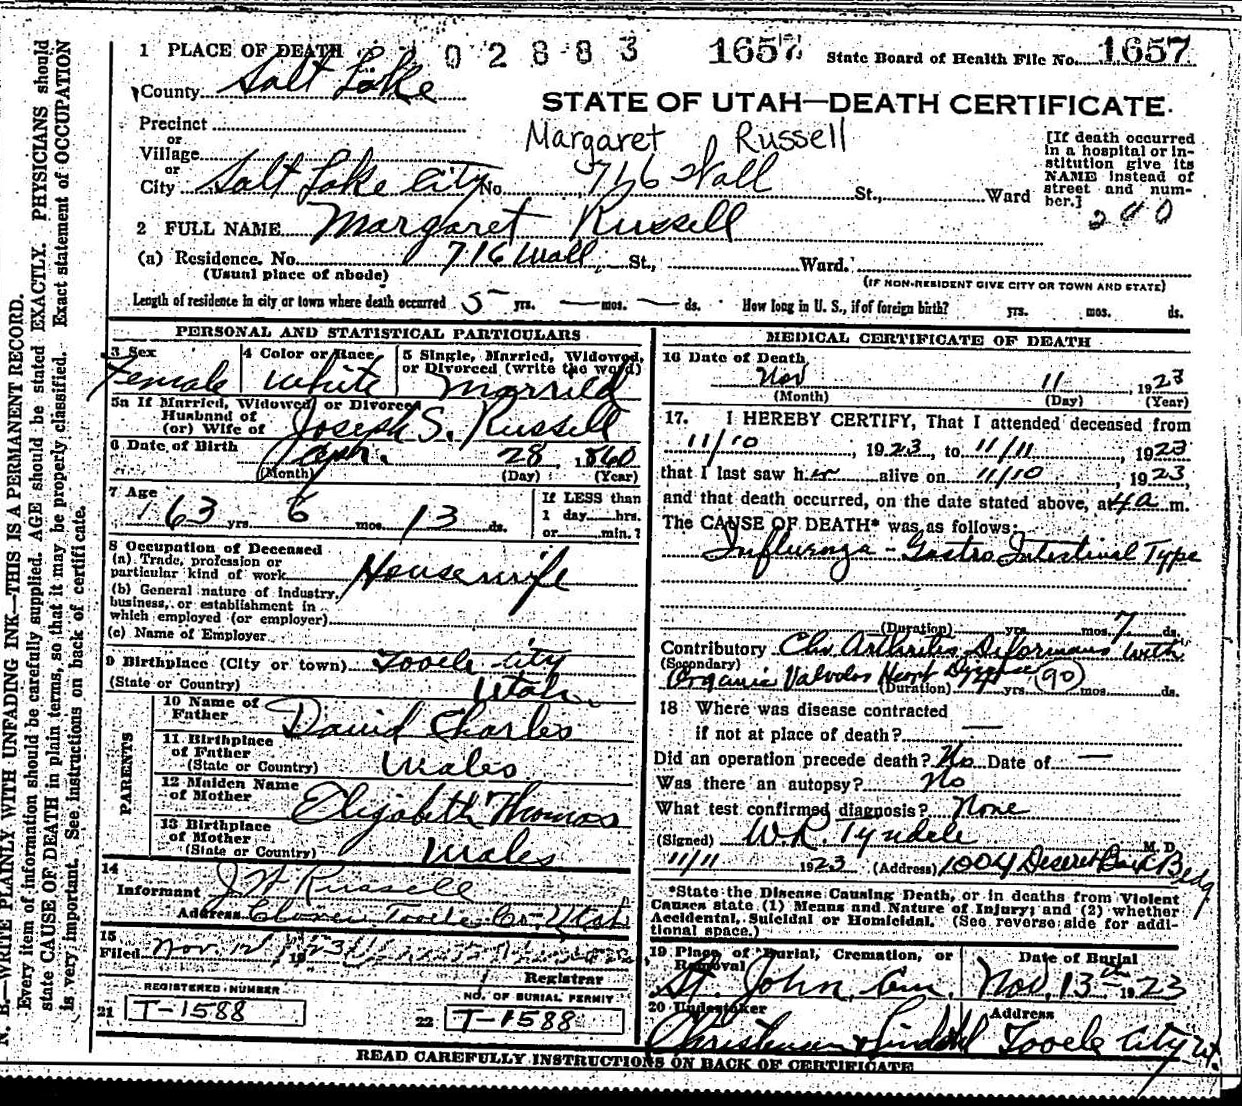 1 PLACE OF DEATH 2 0 2 8 8 3 1657 State Board of Health File No. 1657
County Salt Lake
STATE OF UTAH—DEATH CERTIFICATE
Precinct
or
Village
or
City Salt Lake City No. 716 Wall St., Ward
Margaret Russell
[If death occurred
in a hospital or in-
stitution give its
NAME instead of
street and num-
ber.]
2 FULL NAME Margaret Russell
(a) Residence. No. 716 Wall St., Ward.
(Usual place of abode) (IF NON-RESIDENT GIVE CITY OR TOWN AND STATE)
Length of residence in city or town where death occurred 5 yrs. — mos. — ds. How long in U. S., if of foreign birth? yrs. mos. ds.
PERSONAL AND STATISTICAL PARTICULARS
3 Sex
Female
4 Color or Race
White
5 Single, Married, Widowed,
or Divorced (write the word)
Married
5a If Married, Widowed, or Divorced
Husband of
(or) Wife of Joseph S. Russell
6 Date of Birth Apr. 28 1860
(Month) (Day) (Year)
7 Age
63 yrs. 6 mos. 13 ds.
If LESS than
1 day hrs.
or min.?
8 Occupation of Deceased
(a) Trade, profession or
particular kind of work Housewife
(b) General nature of industry,
business, or establishment in
which employed (or employer)
(c) Name of Employer
9 Birthplace (City or town) Tooele City
(State or Country) Utah
PARENTS
10 Name of
Father David Charles
11 Birthplace
of Father
(State or Country) Wales
12 Maiden Name
of Mother Elizabeth Thomas
13 Birthplace
of Mother
(State or Country) Wales
14
Informant J W Russell
Address Clover Tooele Co. Utah
15
Filed Nov. 12 1923
Registrar
REGISTERED NUMBER
21 T-1588
NO. OF BURIAL PERMIT
22 T-1588
MEDICAL CERTIFICATE OF DEATH
16 Date of Death
Nov 11 1923
(Month) (Day) (Year)
17. I HEREBY CERTIFY, That I attended deceased from
11/10, 1923, to 11/11, 1923
that I last saw her alive on 11/10, 1923
and that death occurred, on the date stated above, at 4 a m.
The CAUSE OF DEATH* was as follows:
Influenza - Gastro Intestinal Type
(Duration) yrs. mos. 7 ds.
Contributory Chr Arthritis Deformans with
(Secondary) Organic Valvular Heart Disease (90)
(Duration) yrs. mos. ds.
18 Where was disease contracted
if not at place of death? —
Did an operation precede death? No Date of —
Was there an autopsy? No
What test confirmed diagnosis? None
(Signed) W.R. Tyndale M. D.
11/11 1923 (Address) 1004 Deseret Bank Bldg
*State the Disease Causing Death, or in deaths from Violent
Causes state (1) Means and Nature of Injury; and (2) whether
Accidental, Suicidal or Homicidal. (See reverse side for addi-
tional space.)
19 Place of Burial, Cremation, or
Removal
St. John, Cem.
Date of Burial
Nov. 13th 1923
20 Undertaker
Address
Tooele City Ut.
READ CAREFULLY INSTRUCTIONS ON BACK OF CERTIFICATE
N. B.—WRITE PLAINLY WITH UNFADING INK—THIS IS A PERMANENT RECORD.
Every item of information should be carefully supplied. AGE should be stated EXACTLY. PHYSICIANS should
state CAUSE OF DEATH in plain terms, so that it may be properly classified. Exact statement of OCCUPATION
is very important. See instructions on back of certificate.